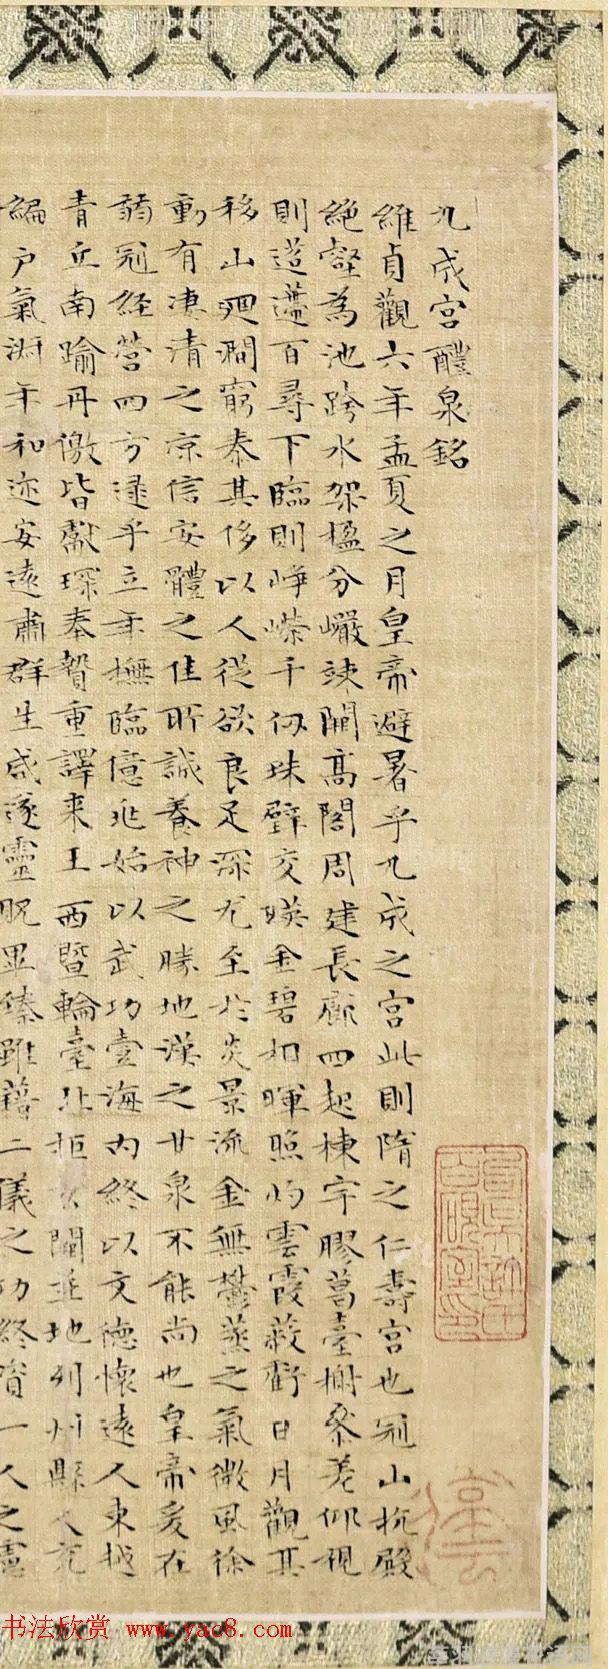 九成宮醴泉銘
維貞觀六年孟夏之月皇帝避暑乎九成之宮此則隋之仁壽宮也冠山抗殿
絶壑為池跨水架楹分巗竦闕高閣周建長廊四起棟宇膠葛臺榭叅差仰視
則迢遰百尋下臨則崢嶸千仞珠璧交暎金碧相暉照灼雲霞蔽虧日月觀其
移山廻澗窮泰其侈以人從欲良足深尤至於炎景流金無鬱蒸之氣微風徐
動有凄清之涼信安體之佳所誠養神之勝地漢之甘泉不能尚也皇帝爰在
弱冠經營四方逮乎立年撫臨億兆始以武功壹海內終以文德懷遠人東越
青丘南踰丹儌皆獻琛奉贄重譯来王西暨輪臺北拒玄闕並地列州縣人充
編戶氣淑年和迩安遠肅群生咸遂靈貺畢臻雖藉二儀之功終資一人之慮
书法欣赏 www.yac8.com